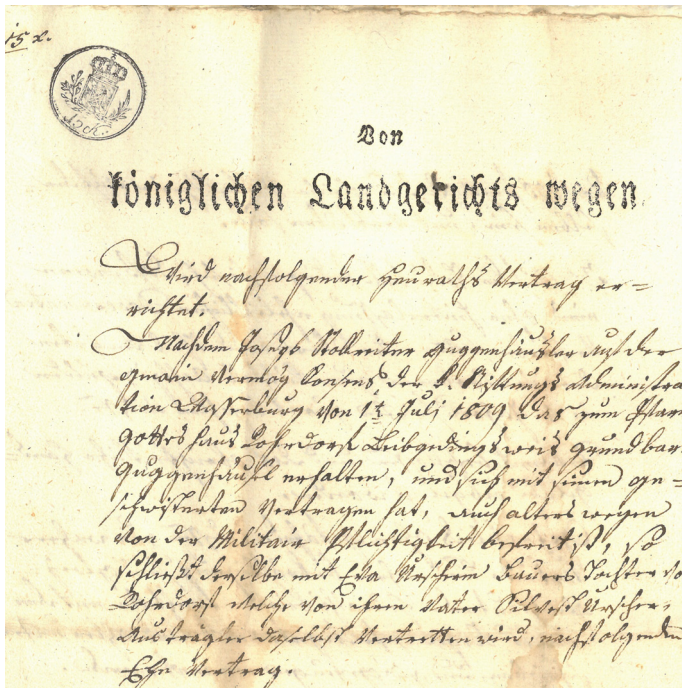 15 x.
15 K.
Von
königlichen Landgerichts wegen
Wird nachfolgender Heuraths Vertrag er=
richtet.
Nachdem Joseph Stockreiter Guggenhäusler auf der
Gmain vermög Consens der k. Stiftungs Administra
tion Wasserburg von 1t Juli 1809 das zum Pfarr
Gotteshaus Rohrdorf Leibgedingsweis grundbar
Guggenhäusl erhalten, und sich mit seinen ge=
schwisterten Vertragen hat, auch alters wegen
von der Militair Pflichtigkeit befreit ist, so
schließt derselbe mit Eva Urscherin Bauers Tochter vo
Rohrdorf welche von ihrem Vater Silvest Urscher,
Austrägler daselbst Vertretten wird, nachfolgenden
Ehe Vertrag.